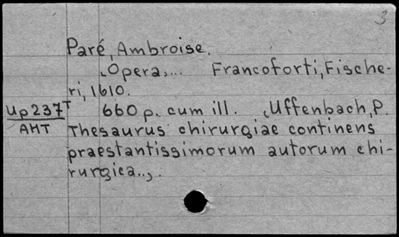 3
Paré, Ambroise.
„Opera,... Francoforti, Fische-
ri, 1610.
Up 237T 660 p. cum ill. „Uffenbach, P.
AMT Thesaurus chirurgiae continens
praestantissimorum autorum chi-
rurgica..„.